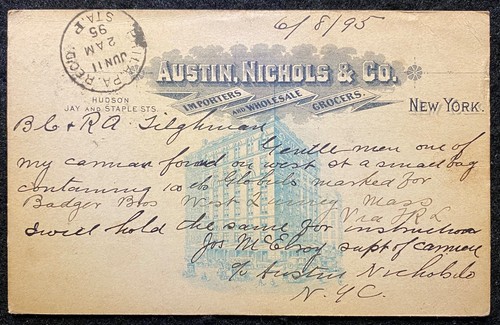 6/8/95
PHILA. PA. REC'D.
JUN 11
2 AM
95
STA. P
AUSTIN, NICHOLS & CO.
IMPORTERS AND WHOLESALE GROCERS.
HUDSON
JAY AND STAPLE STS.
NEW YORK.
B C & R A Tilghman
Gentle men one of
my carman found on west st a small bag
containing 100 lb Globuls marked for
Badger Bros West Quincy Mass
Via F R L
I will hold the same for instruction
Jos McElroy supt of carmen
c/o Austin Nichols Co
N.Y.C.